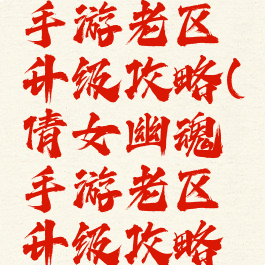 手游老区
升级攻略(
倩女幽魂
手游老区
升级攻略